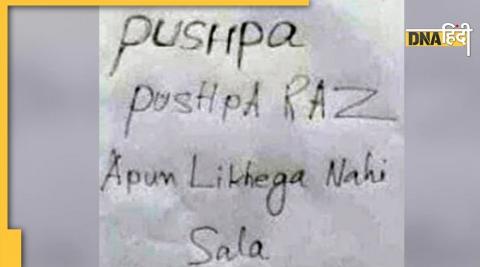 DNA हिंदी
PUSHPA
PUSHPA RAZ
Apun Likhega Nahi
Sala